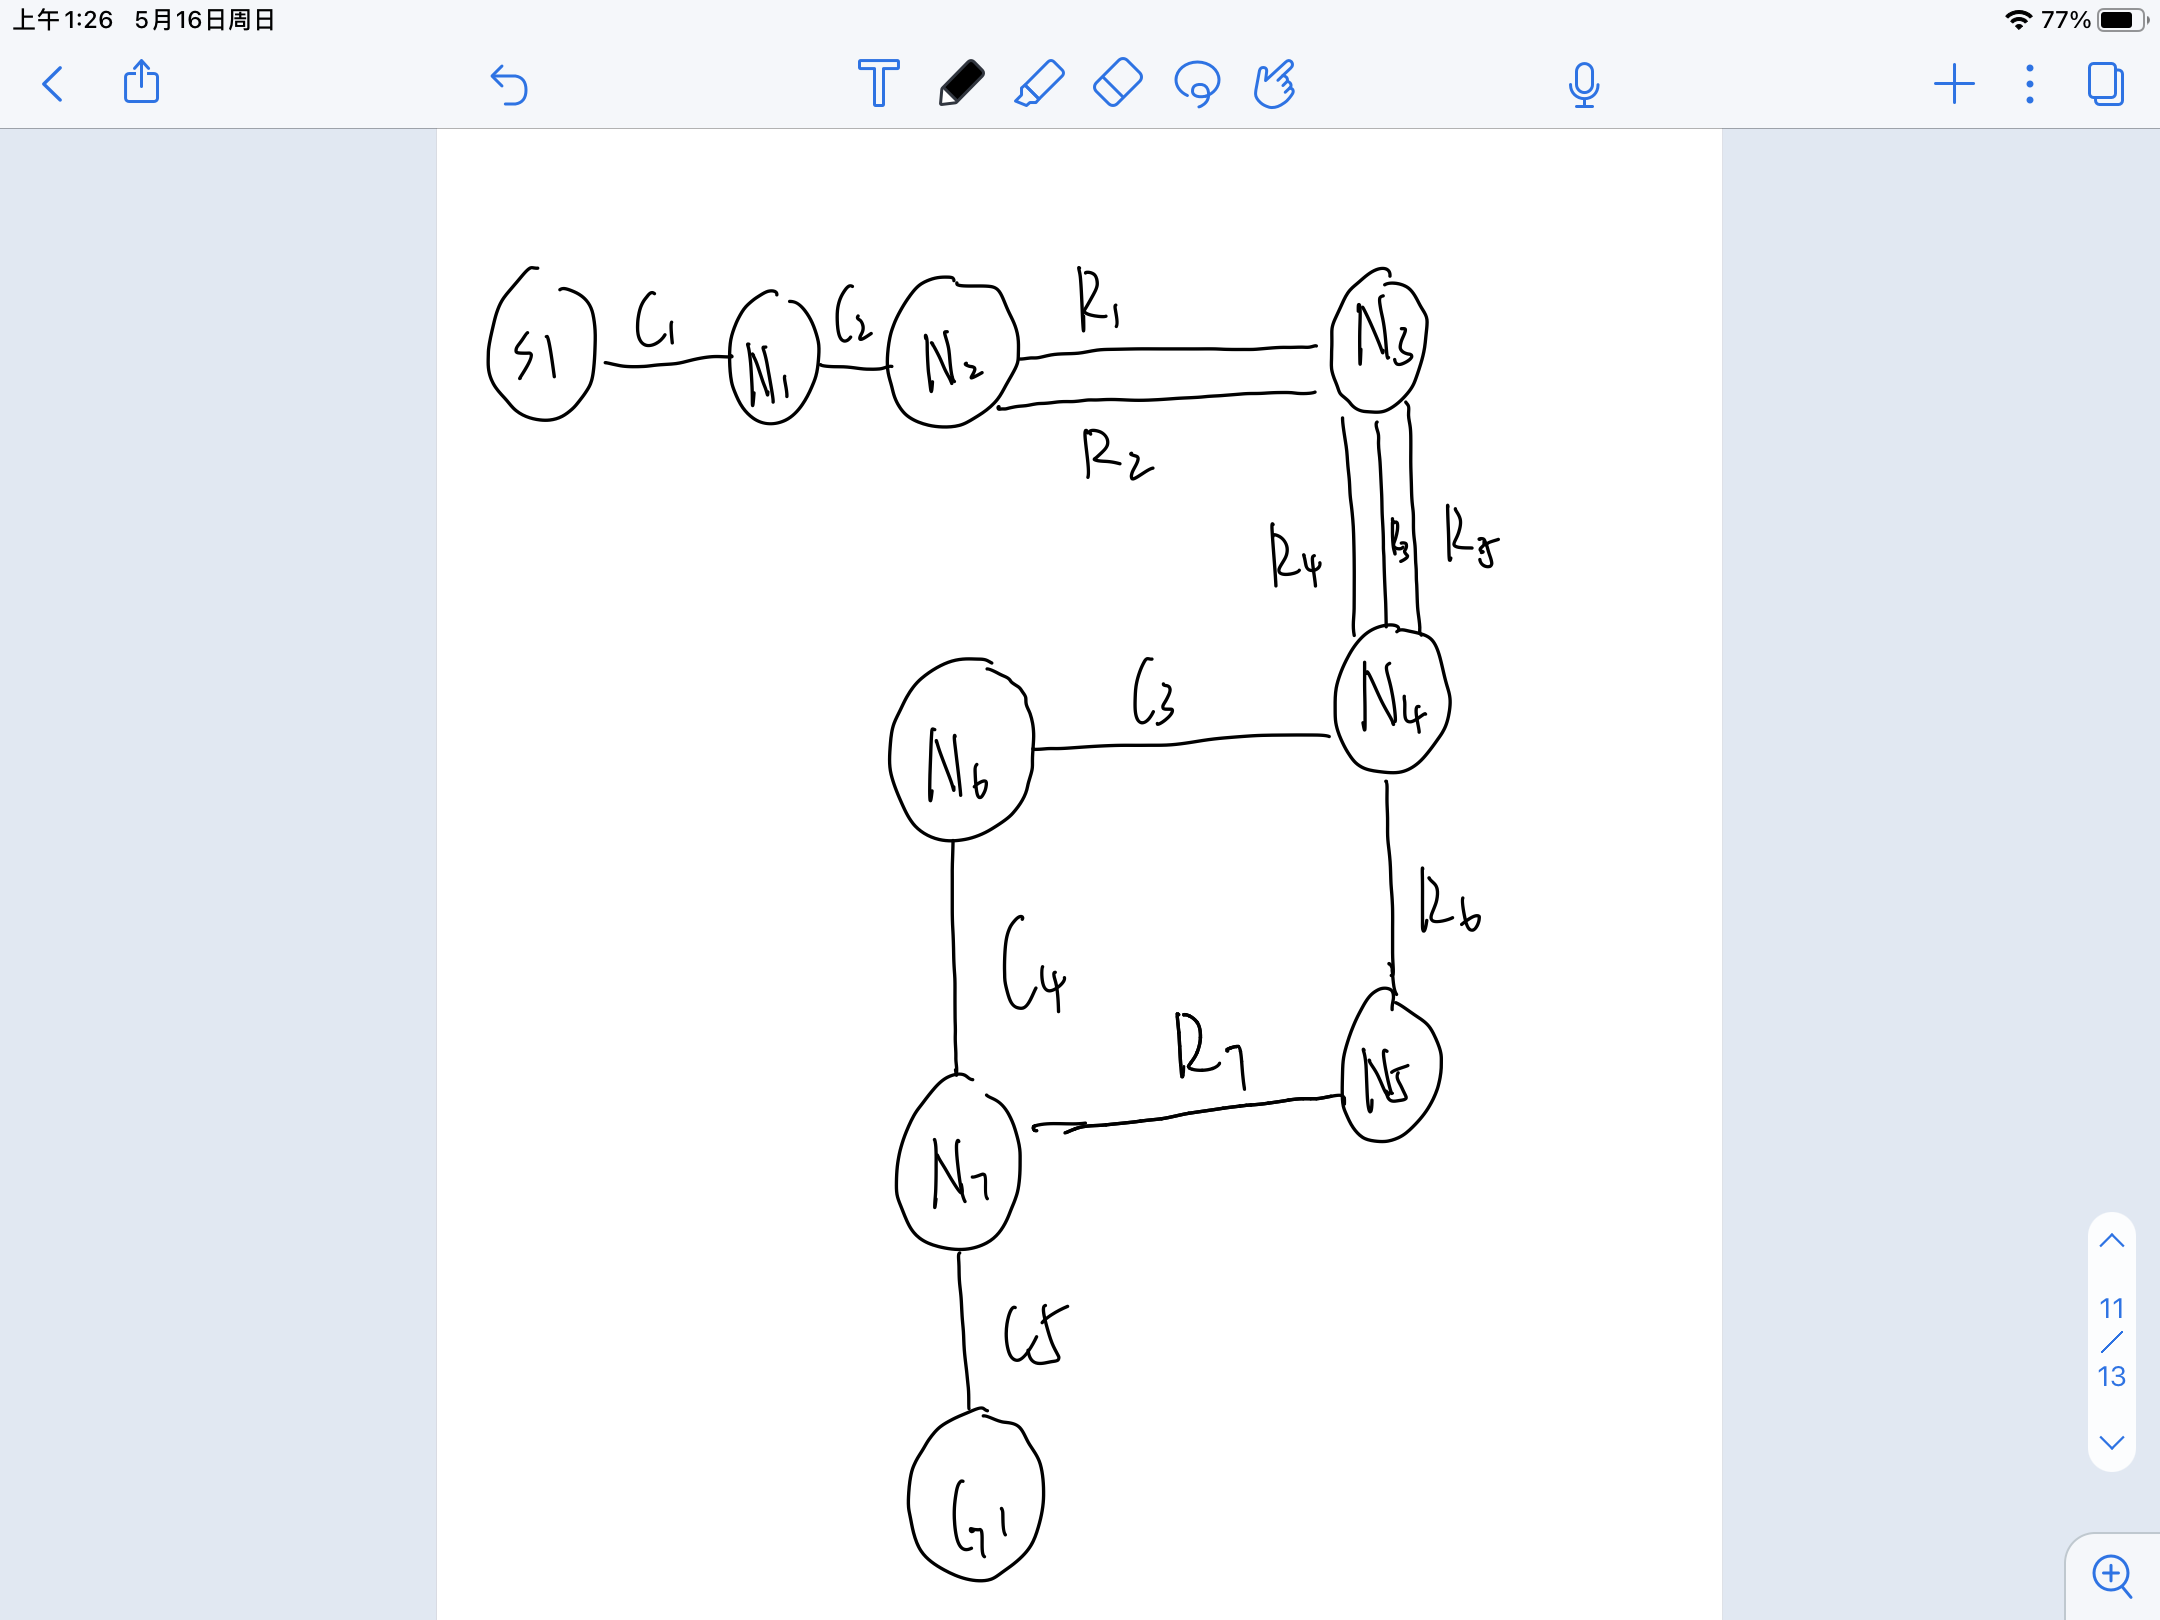 上午1:26 5月16日周日
77%
T
S1
C1
N1
C2
N2
R1
R2
N3
R4
R3
R5
N6
C3
N4
C4
R6
R7
N5
N7
C5
G1
11
/
13